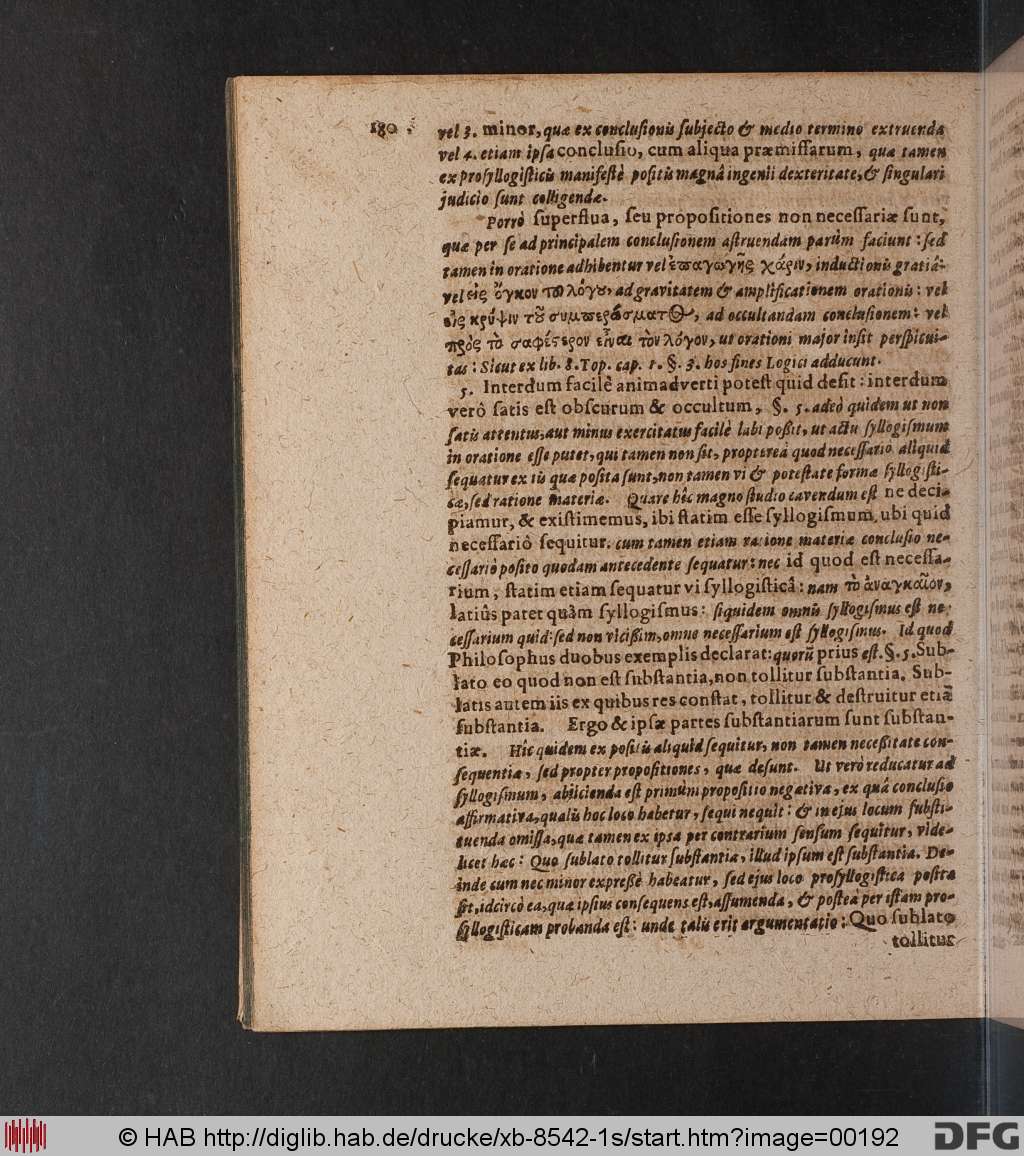 180
vel 3. minor, quæ ex conclusionis subjecto & medio termino extruenda
vel 4. etiam ipsa conclusio, cum aliqua præmissarum, quæ tamen
ex prosyllogisticis manifestè positis magnâ ingenii dexteritate, & singulari
judicio sunt colligendæ.
Porrò superflua, seu propositiones non necessariæ sunt,
quæ per se ad principalem conclusionem astruendam parùm faciunt: sed
tamen in oratione adhibentur vel ἐπαγωγῆς χάριν, inductionis gratiâ:
vel εἰς ὄγκον τοῦ λόγου, ad gravitatem & amplificationem orationis: vel
εἰς κρύψιν τοῦ συμπεράσματος, ad occultandam conclusionem: vel
πρὸς τὸ σαφέστερον εἶναι τὸν λόγον, ut orationi major insit perspicui-
tas: Sicut ex lib. 8. Top. cap. 1. §. 3. hos fines Logici adducunt.
5. Interdum facilè animadverti potest quid desit: interdum
verò satis est obscurum & occultum, §. 5. adeò quidem ut non
satis attentus, aut minus exercitatus facilè labi poßit, ut actu syllogismum
in oratione esse putet, qui tamen non sit, propterea quod necessariò aliquid
sequatur ex iis quæ posita sunt, non tamen vi & potestate formæ syllogisti-
cæ, sed ratione materiæ. Quare hîc magno studio cavendum est ne deci-
piamur, & existimemus, ibi statim esse syllogismum, ubi quid
necessariò sequitur: cum tamen etiam ratione materiæ conclusio ne-
cessariò posito quodam antecedente sequatur: nec id quod est necessa-
rium, statim etiam sequatur vi syllogisticâ: nam τὸ ἀναγκαῖον,
latiùs patet quàm syllogismus: siquidem omnis syllogismus est ne-
cessarium quid: sed non vicißim, omne necessarium est syllogismus. Id quod
Philosophus duobus exemplis declarat: quorũ prius est. §. 5. Sub-
lato eo quod non est substantia, non tollitur substantia. Sub-
latis autem iis ex quibus res constat, tollitur & destruitur etiã
substantia. Ergo & ipsæ partes substantiarum sunt substan-
tiæ. Hîc quidem ex positis aliquid sequitur, non tamen neceßitate con-
sequentiæ, sed propter propositiones, quæ desunt. Ut verò reducatur ad
syllogismum, abiicienda est primùm propositio negativa, ex quâ conclusio
affirmativa, qualis hoc loco habetur, sequi nequit: & in ejus locum substi-
tuenda omissa, quæ tamen ex ipsa per contrarium sensum sequitur, vide-
licet hæc: Quo sublato tollitur substantia, illud ipsum est substantia. De-
inde cum nec minor expreßè habeatur, sed ejus loco prosyllogistica posita
sit, idcircò ea, quæ ipsius consequens est, assumenda, & posteà per istam pro-
syllogisticam probanda est: unde talis erit argumentatio: Quo sublato
tollitur
© HAB http://diglib.hab.de/drucke/xb-8542-1s/start.htm?image=00192
DFG